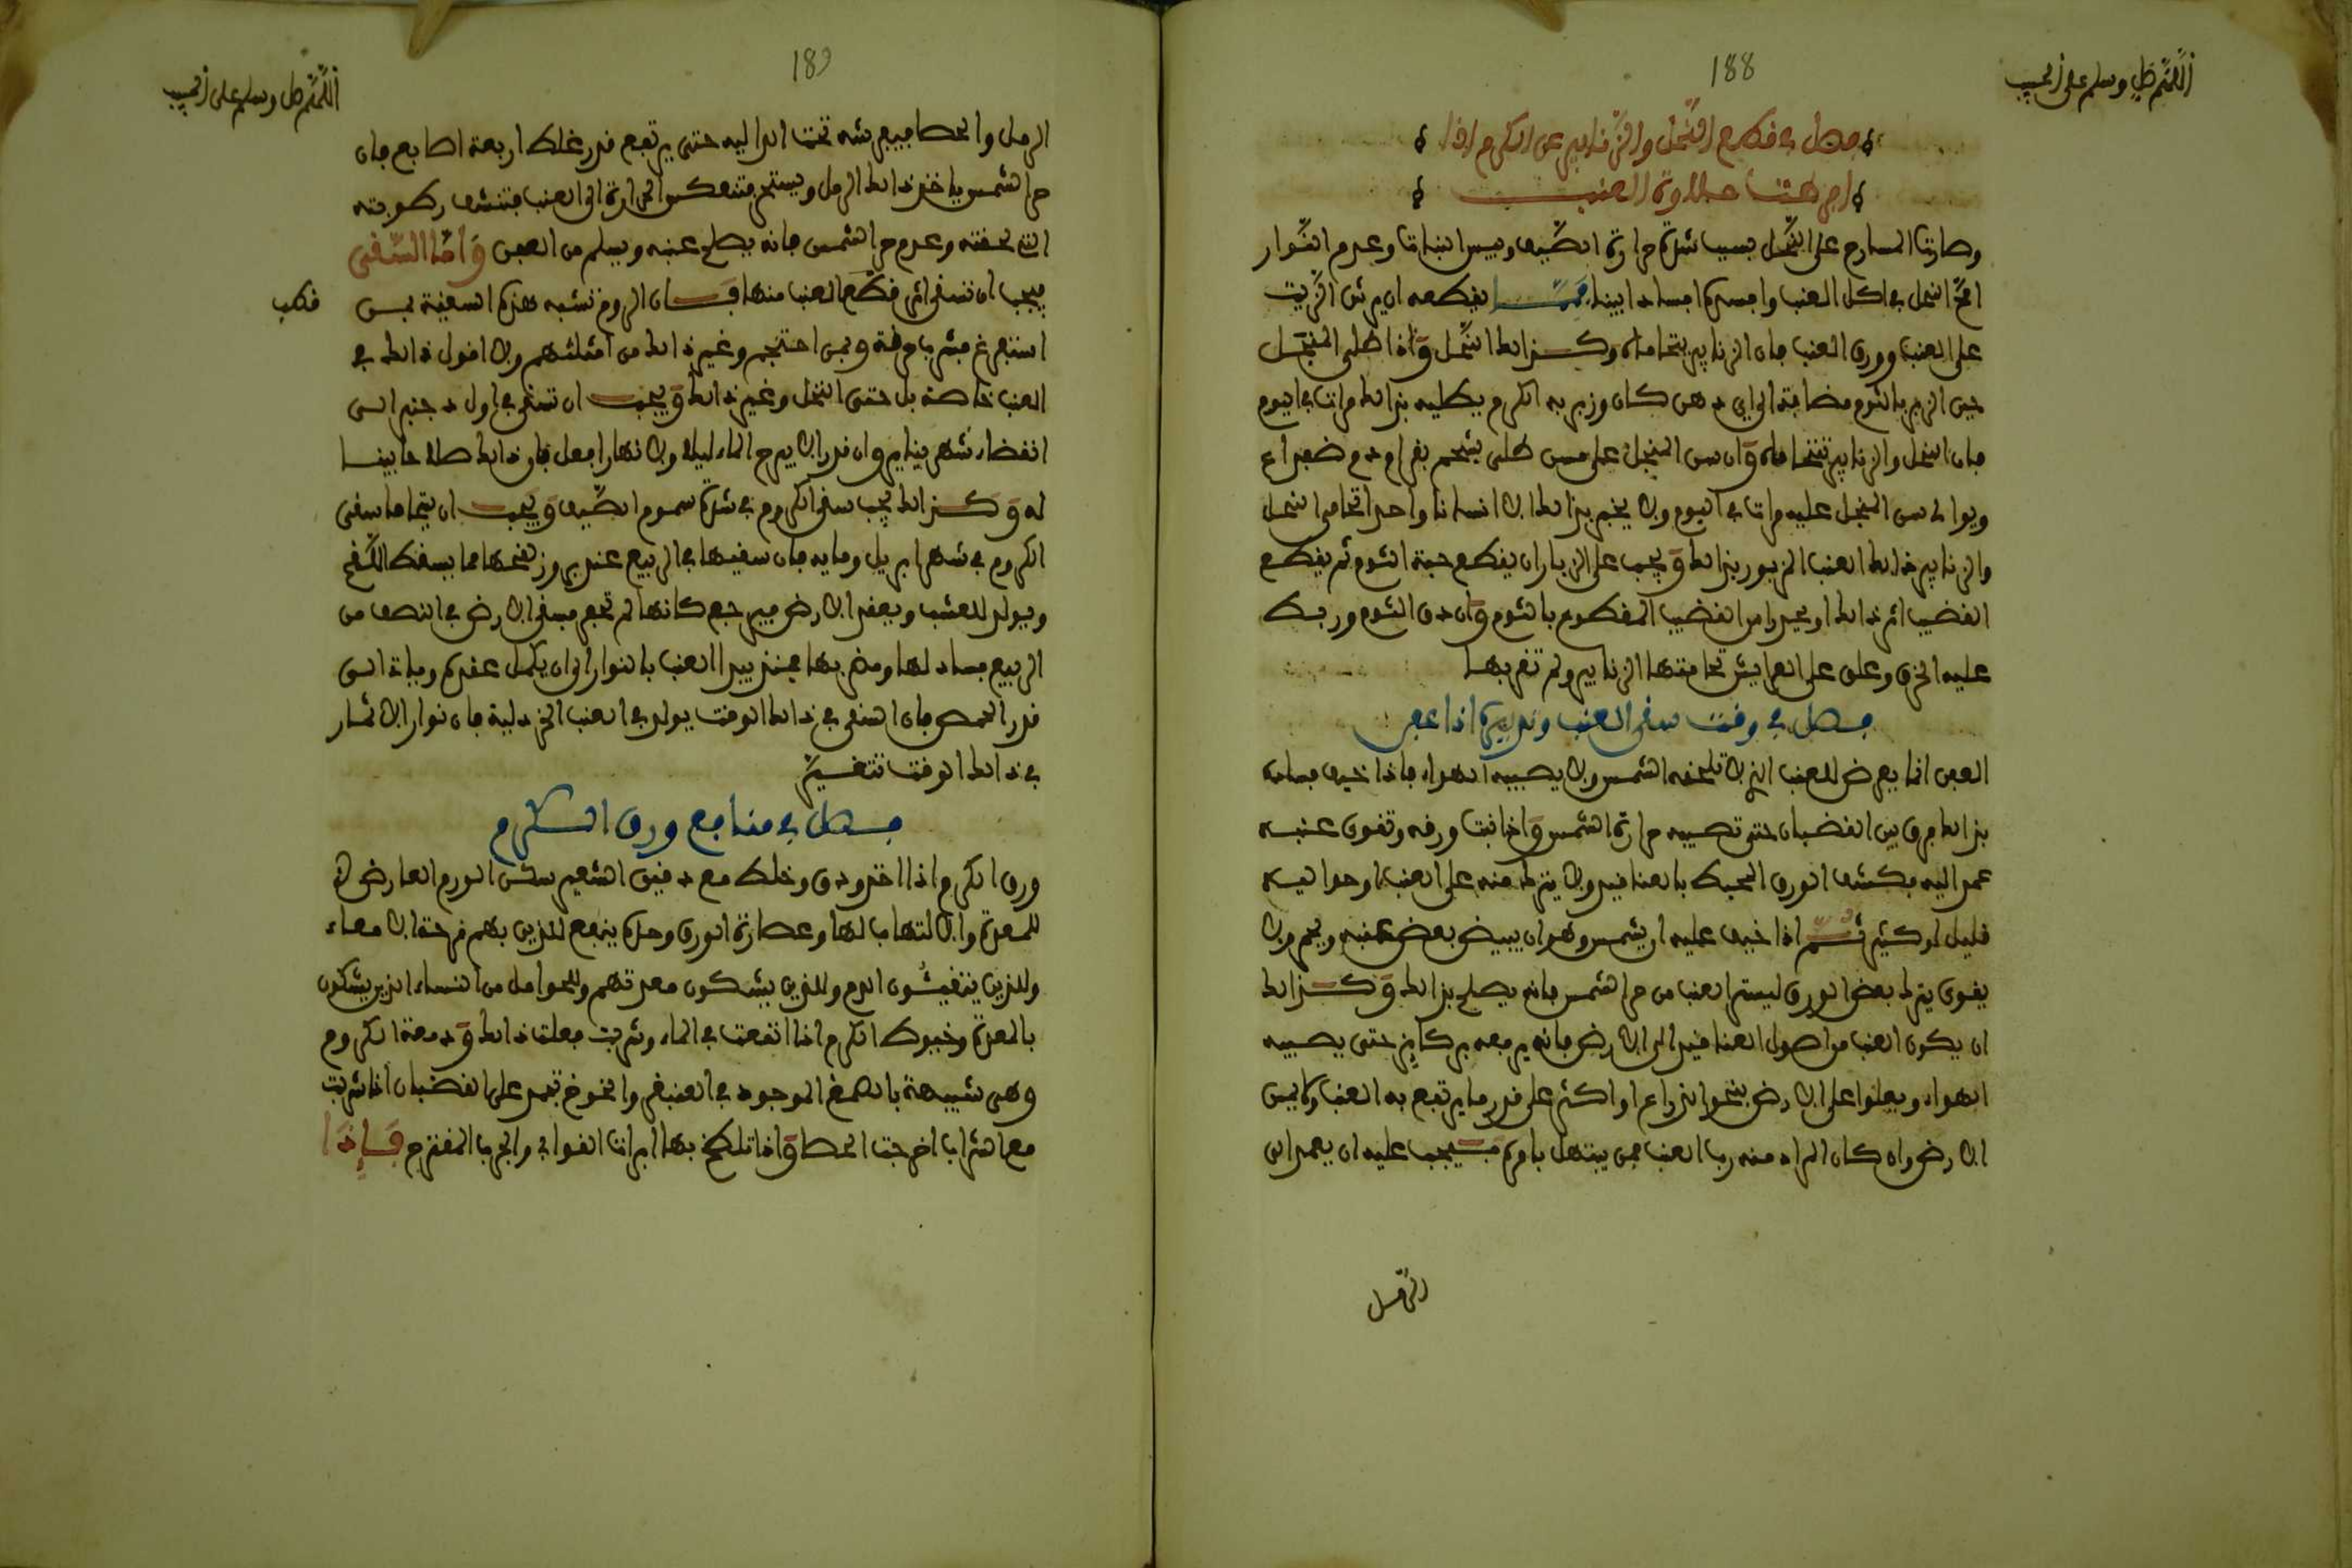 188
اللهم صل وسلم على الحبيب
فصل في قطع النحل والزنابير عن الكرم اذا
افرطت حلاوة العنب
وصارت المسارح على النحل بسبب شدة حرارة الصيف ويبس النبات وعدم النوار
النحل في اكل العنب وافسده افسادا بينا يقطعه ان يرش الزيت
على العنب وورق العنب فان الزنابير يتحاماه وكذالك النحل واذا طلى المنجل
حين الزبر بالثوم مضافة الى اي دهن كان وزبر به الكرم يطليه بذالك مرات في اليوم
فان النحل والزنابير تتحاماه وان سن المنجل على مسن طلى بشحم بقر او دم ضفدع
ويوالى سن المنجل عليه مرات في اليوم ولا يخبر بذالك الا انسانا واحدا تحامى النحل
والزنابير ذالك العنب المزبور بذالك ويجب على الزبار ان يقطع حبة الثوم ثم يقطع
القضيب اثر ذالك او يحد رأس القضيب المقطوع بالثوم وان دق الثوم وربط
عليه الخرق وعلق على العرايش تحامتها الزنابير ولم تقربها
فصل في وقت سقى العنب وتدبيره اذا عفن
العفن انما يعرض للعنب الذي لا تلحقه الشمس ولا يصيبه الهواء فاذا خيف فساده
بذالك فرق بين القضبان حتى تصيبه حرارة الشمس واذا نبت ورقه وتقوى عنبه
عمد اليه بكشف الورق المحيط بالعناقيد ولا يترك منه على العنب او حواليه
قليل او كثير ثم اذا خيف عليه الشمس وهو ان يبيض بعض عنبه ويحمر ولا
يقوى يترك بعض الورق ليستر العنب من حر الشمس فانه يصلح بذالك وكذالك
ان يكون العنب من اصول العناقيد الى الارض فانه يرفعه بركايز حتى يصيبه
الهواء ويعلوا على الارض بنحو الذراع او اكثر على قدر ما يرتفع به العنب ولا يمس
الارض وان كان المراد منه رب العنب ممن يتنهل بامره فيجب عليه ان يعمد الى
الرمل
189
اللهم صل وسلم على الحبيب
الرمل والحصا فيفرشه تحت الدالية حتى يرتفع قدر غلظ اربعة اصابع فان
حر الشمس ياخذ ذالك الرمل ويستحر فتنعكس الحرارة الى العنب فتنشف رطوبته
التي لحقته وعدم حر الشمس فانه يصلح عنبه ويسلم من العفن واما السقى
فيجب ان تسقى اثر قطع العنب منها قال الروم تشبه هذه السقية بمن
قطب
استفرغ فبشر بامرقة وبمن احتجم وغير ذالك من امثلتهم ولا اقول ذالك في
العنب خاصة بل حتى النخل وغير ذالك ويجب ان تسقى في اول دجنبر الى
انقضاء شهر يناير وان قدر الا يبرح الماء ليلا ولا نهارا فعل فان ذالك صلاحا بينا
له وكذالك يجب سقى الكروم في شدة سموم الصيف ويجب ان يتحاما سقى
الكروم في شهر ابريل ومايه فان سقيها في الربيع عند بروز لقحها مما يسقط اللقح
ويولد للعشب ويعقد الارض فيرجع كانها لم تحفر فسقى الارض في النصف من
الربيع فساد لها ومضر بها فمنذ يبدا العنب بالنوار الى ان يكمل عقده وياتي الى
قدر الحمص فان السقى في ذالك الوقت يولد في العنب الخردلية فان نوار الاثمار
في ذالك الوقت تتغير
فصل في منافع ورق الكرم
ورق الكرم اذا اخذ ودق وخلط مع دقيق الشعير سكن الورم العارض في
للمعدة والالتهاب لها وعصارة الورق وحده ينفع للذين بهم قرحة الامعاء
وللذين يتقيئون الدم وللذين يشكون معدتهم وللحوامل من النساء الذين يشكون
بالمعدة وخيوط الكرم اذا انقعت في الماء وشربت فعلت ذالك ودمعة الكروم
وهى شبيهة بالصمغ الموجود في العنبقر والخوخ تجمد على القضبان اذا شربت
مع الشراب اخرجت الحصا واذا تلطخ بها ابرات القوابى والجرب المتقرح فاذا